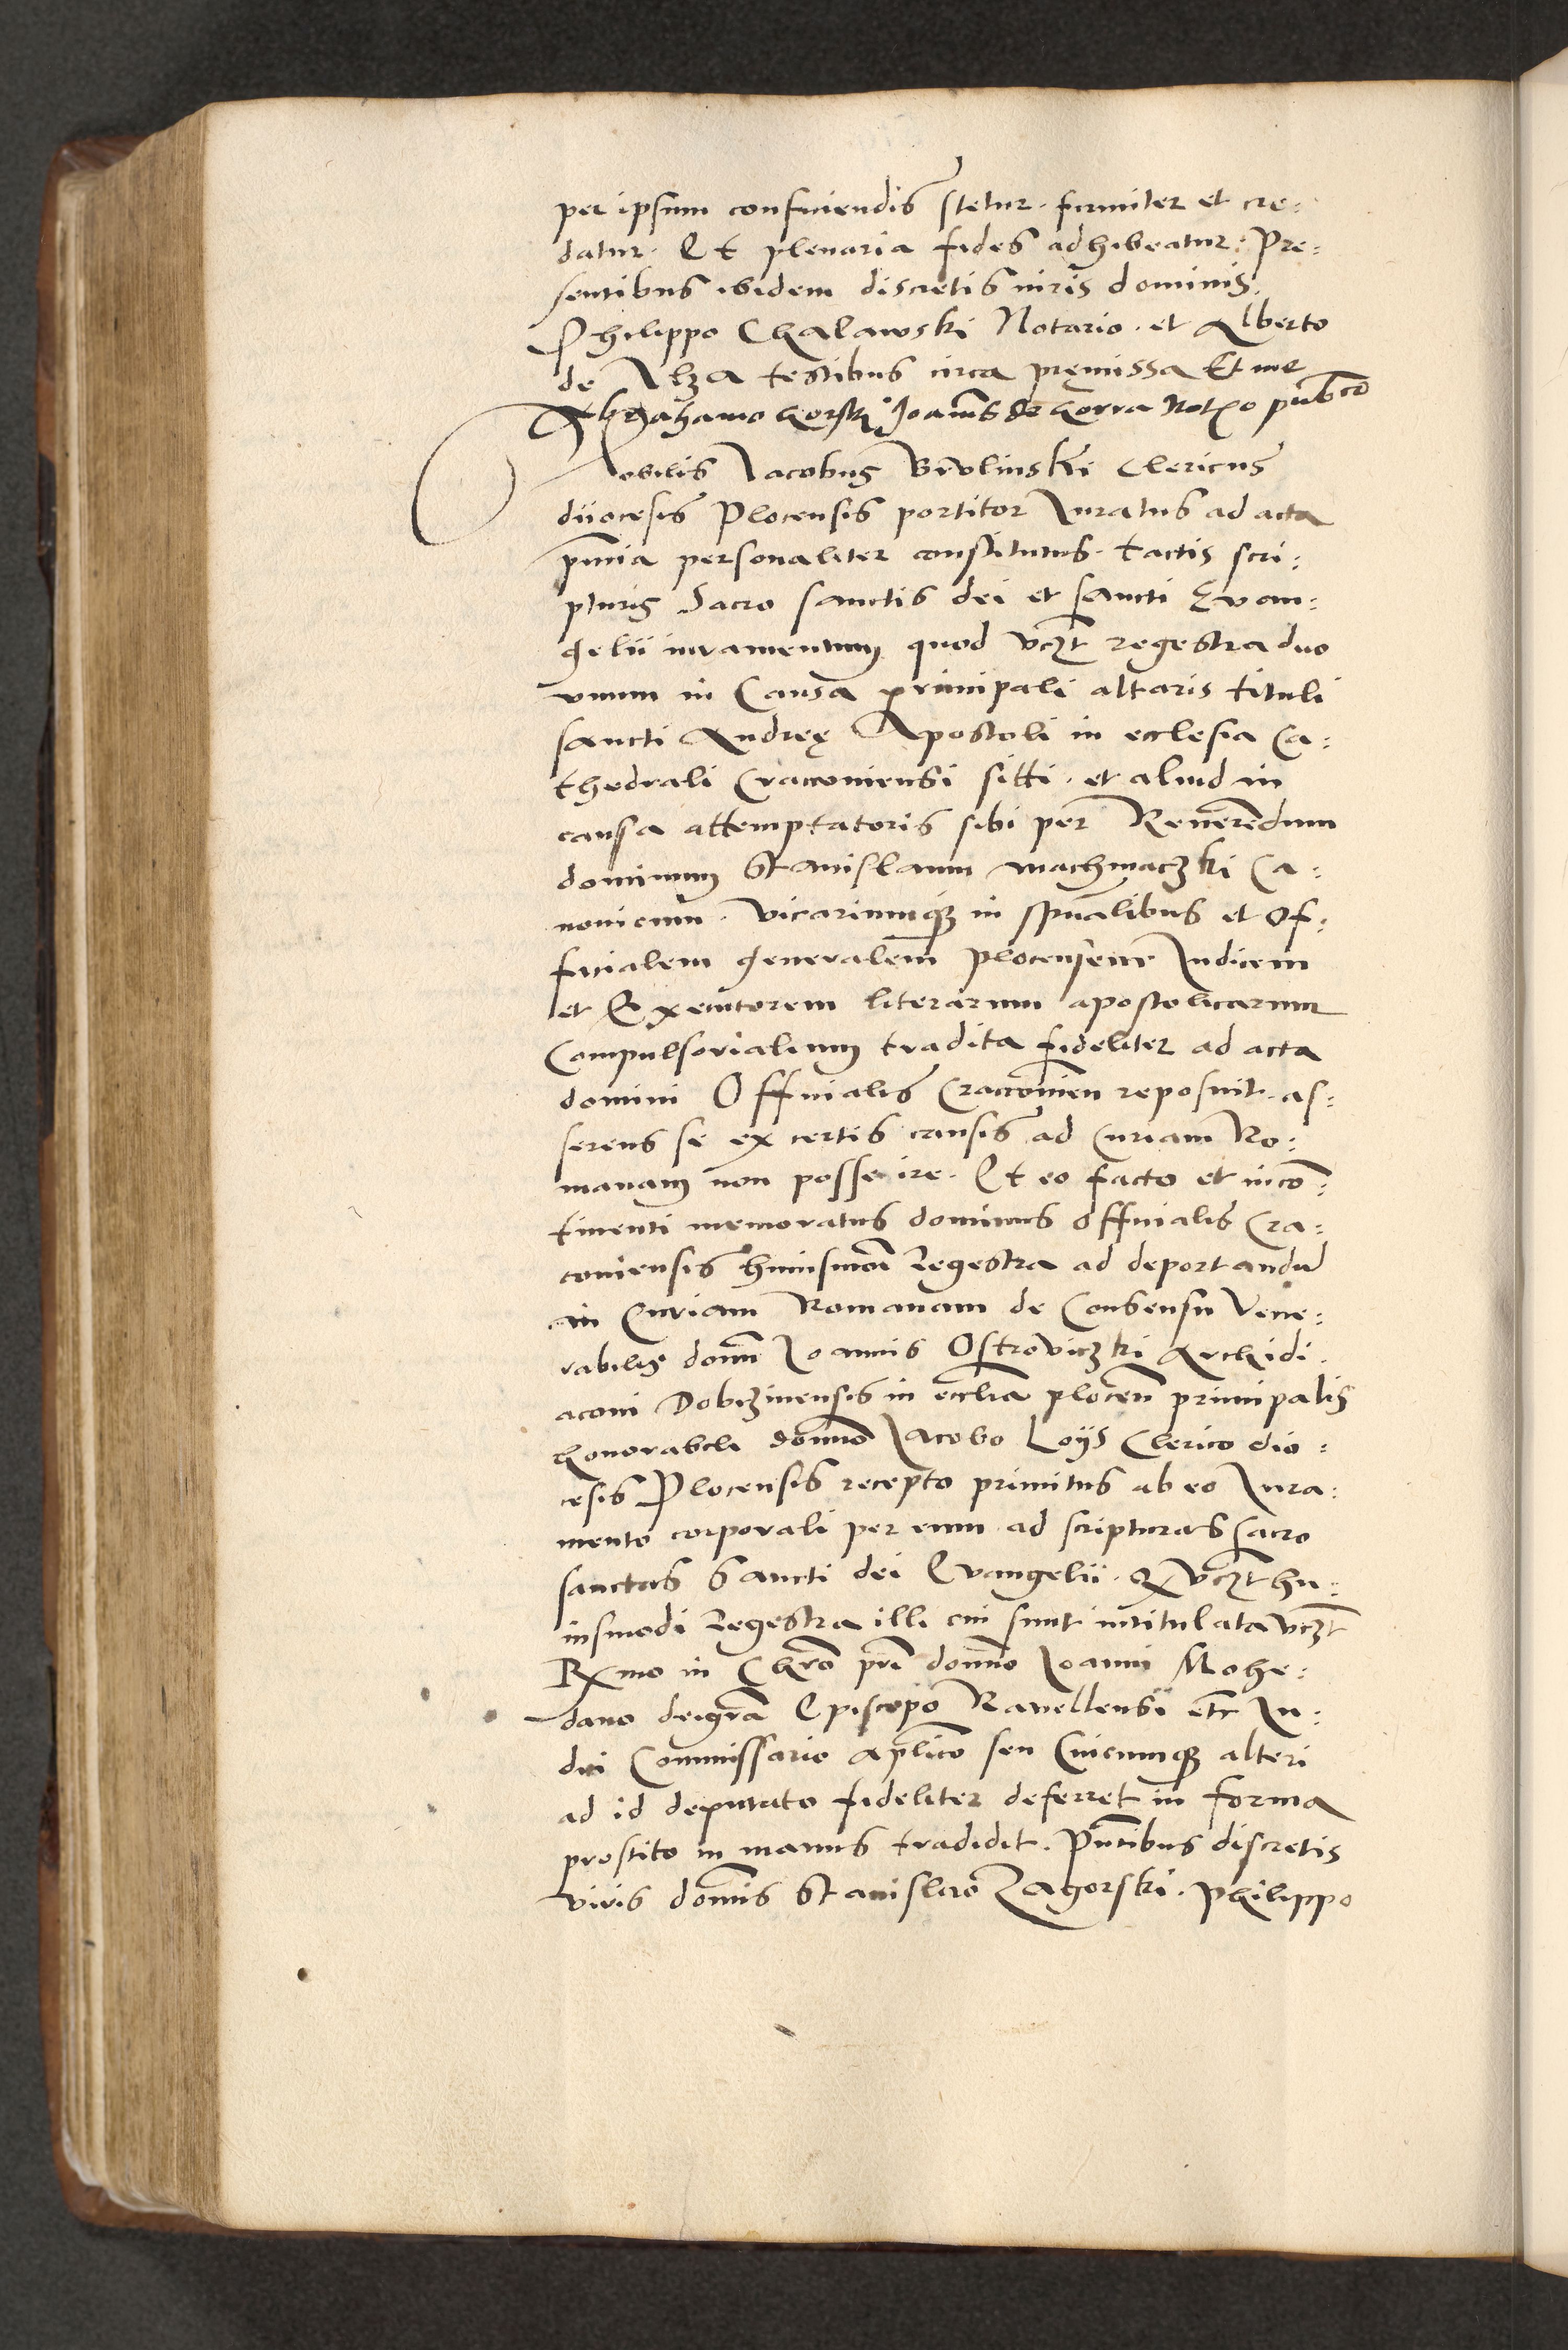 per ipsum conficiendis stetur. firmiter et cre:
datur. Et plenaria fides adhibeatur: Pre:
sentibus ibidem discretis viris dominis.
Philippo Chalawski Notario. et Alberto
de Ilza testibus circa premissa Et me
Abrahamo Gorski Joannis de Gorra Notº publico
Nobilis Jacobus Clericus
diiocesis Plocensis portitor Iuratus ad acta
pnia personaliter constitutus. tactis scri:
pturis Sacro sanctis dei et sancti Evan:
gelii iuramentum quod vczt regestra duo
vnum in Causa principali altaris tituli
sancti Andreę Apostoli in ecclesia Ca:
thedrali Cracouiensi sitti. et aliud in
causa attemptatoris sibi per Reuerendum
dominum Stanislaum machnaczki Ca:
nonicum. vicariumque in spualibus et Of:
ficialem generalem plocensem Iudicem
et Executorem literarum apostolicarum
Compulsorialium tradita fideliter ad acta
domini Officialis Cracouien reposuit. as:
serens se ex certis causis ad Curiam Ro:
manam non posse ire. Et eo facto et inco:
tinenti memoratus dominus officialis Cra:
couiensis huiusmoi Regestra ad deportandu
in Curiam Romanam de Consensu Vene:
rabilis domi Joannis Ostroviczki Archidi.
aconi Dobrzinensis in ecclia plocen principalis
honorabili domno Jacobo Loÿs Clerico dio:
cesis Plocensis recepto primitus ab eo Iura:
mento corporali per eum ad scripturas sacro
sanctas Sancti dei Evangelii. Q vczt hu:
iusmodi Regestra illi cui sunt intitulata vczt
Rxmo in Chro pri domno Joanni Mohe:
dano dei gra Episcopo Rauellensi etc Iu:
dici Commissario aplico seu Cuicumque alteri
ad id deputato fideliter deferret in forma
prestito in manus tradidit. Pntibus discretis
viris domis Stanislao Zagorski. Philippo